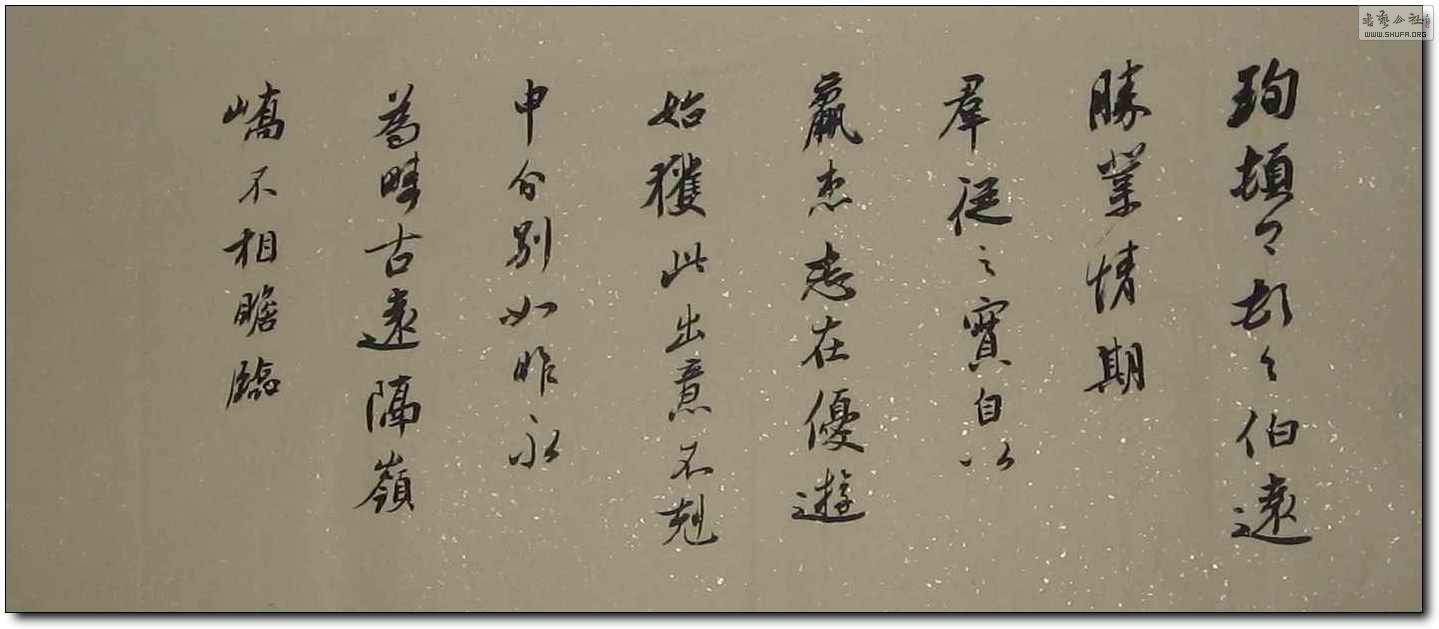 珣頓首頓首伯遠
勝業情期
羣從之寶自以
羸患志在優遊
始獲此出意不剋
申分別如昨永
為疇古遠隔嶺
嶠不相瞻臨
书藝公社
WWW.SHUFA.ORG